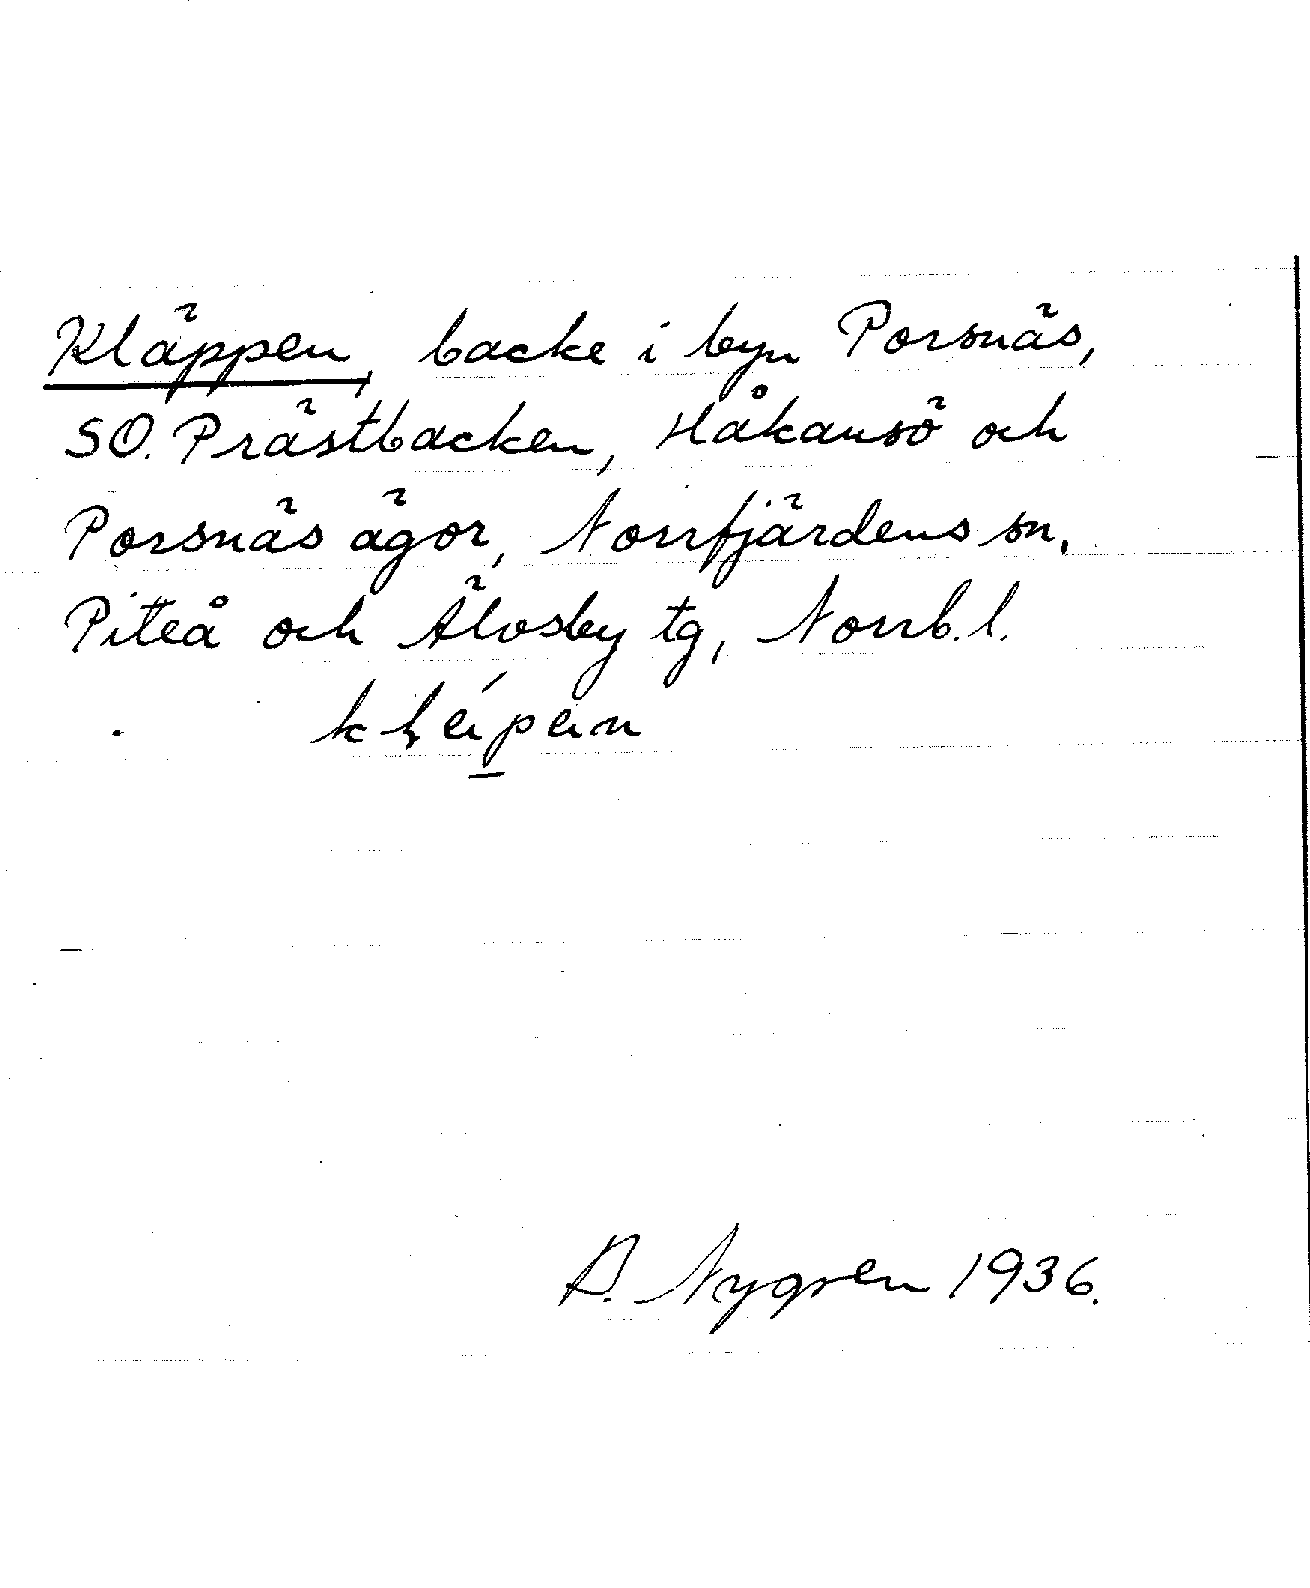 Kläppen, backe i byn Porsnäs,
SO. Prästbacken, Håkansö och
Porsnäs ägor, Norrfjärdens sn.
Piteå och Älvsby tg, Norrb. l.
B. Nygren 1936.